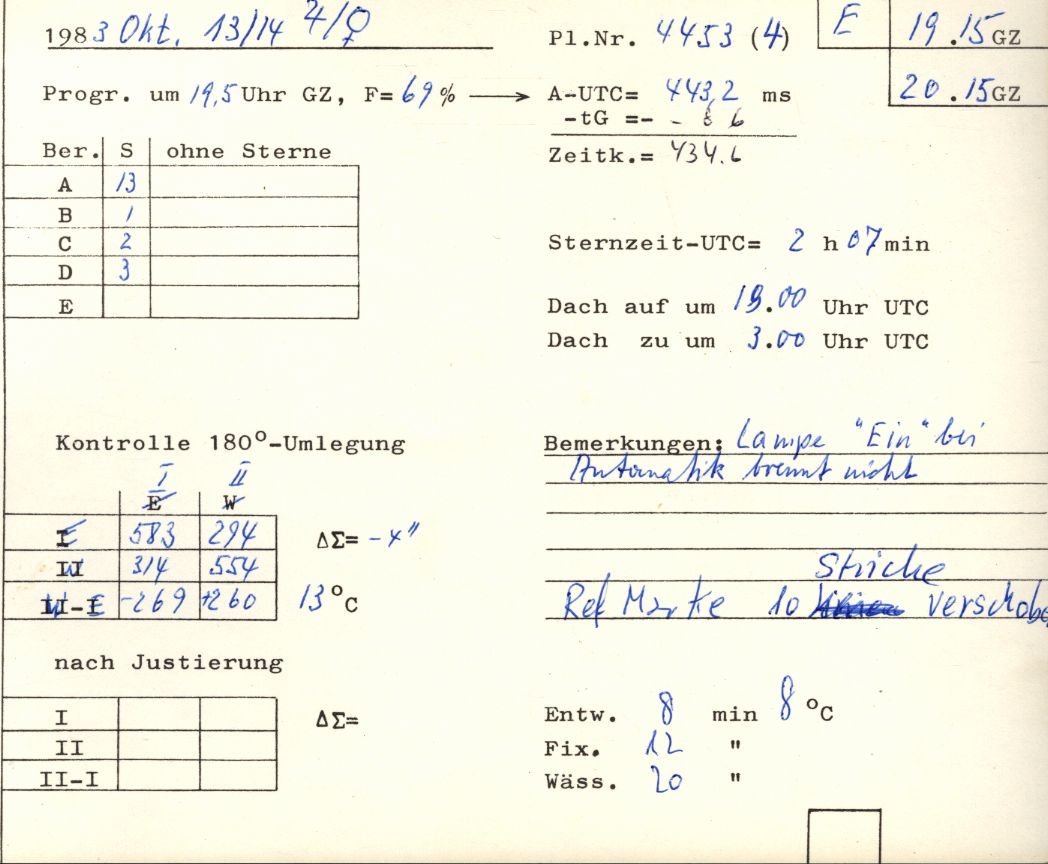 1983 Okt. 13/14 ♃/♀ Pl.Nr. 4453 (4) E 19.15 GZ
Progr. um 19,5 Uhr GZ, F= 69% → A-UTC= 443,2 ms 20.15 GZ
-tG =- - 8 6
Ber. S ohne Sterne Zeitk.= 434.6
A 13
B 1
C 2 Sternzeit-UTC= 2 h 07 min
D 3
E Dach auf um 19.00 Uhr UTC
Dach zu um 3.00 Uhr UTC
Kontrolle 180°-Umlegung Bemerkungen: Lampe "Ein" bei
Automatik brennt nicht
I II
E W
I 583 294 ΔΣ= -4"
II 314 554 Striche
II-I -269 +260 13 °C Ref Marke 10 verschoben
nach Justierung
I ΔΣ= Entw. 8 min 8 °C
II Fix. 12 "
II-I Wäss. 20 "